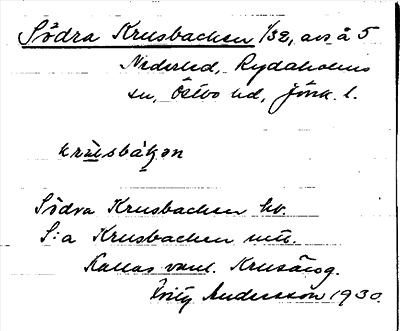 Södra Krusbacken 1/32, avs å 5
Nederled, Rydaholms
sn, Östbo hd, Jönk. l.
krùsbákən
Södra Krusbacken ht.
S:a Krusbacken mtl.
Kallas vanl. Krusäng.
Andersson 1930.